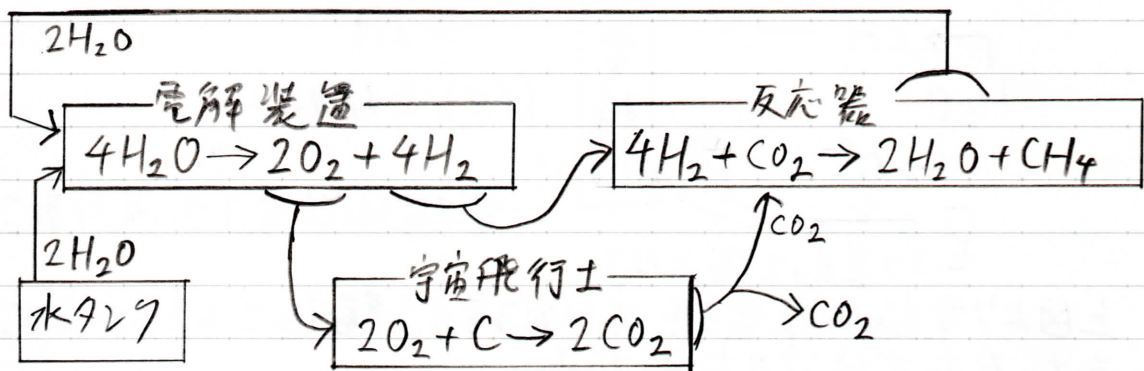 2H₂O
電解装置
4H₂O → 2O₂ + 4H₂
反応器
4H₂ + CO₂ → 2H₂O + CH₄
2H₂O
水タンク
宇宙飛行士
2O₂ + C → 2CO₂
CO₂
CO₂